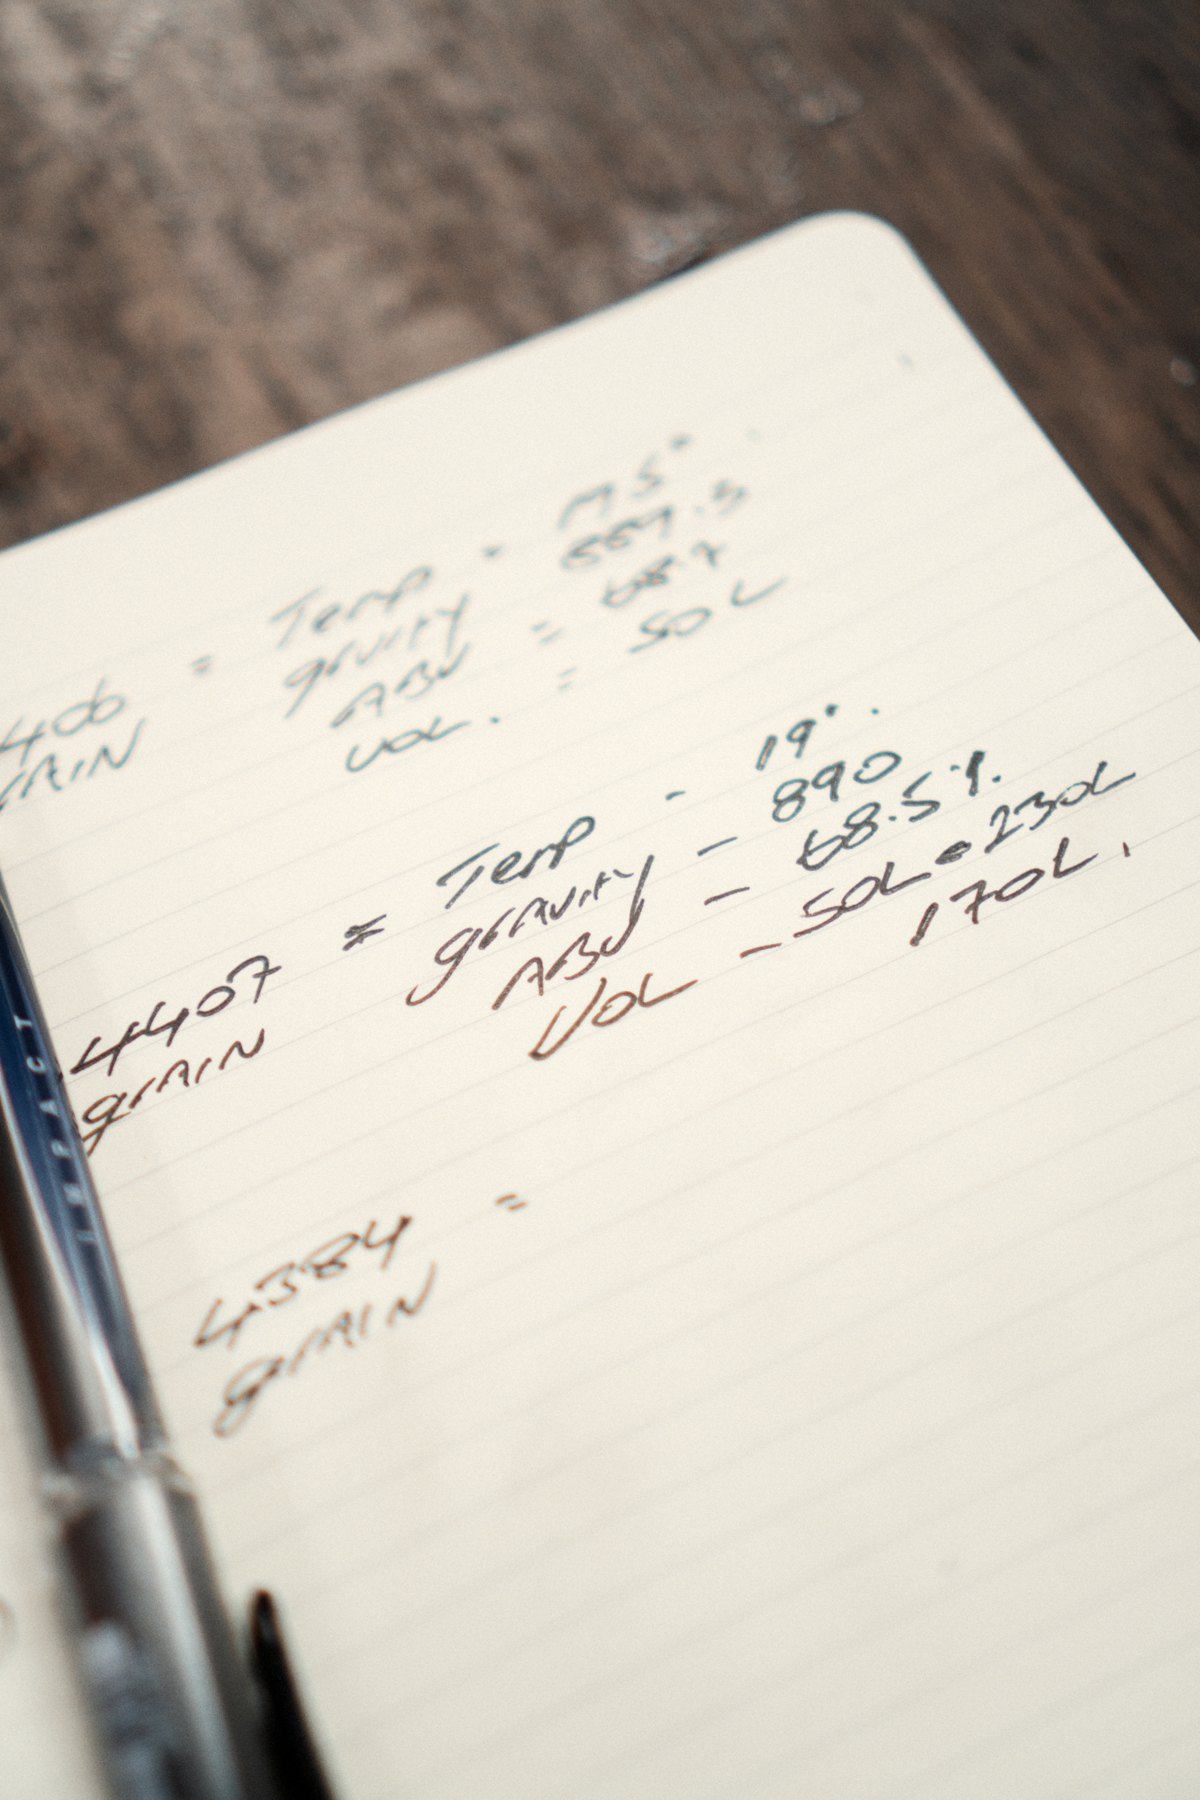 406 = Temp -
gravity
ABV = 68%
VOL. = 50L
4407 = Temp - 19°.
grain gravity - 890
ABV - 68.5%.
VOL - 50L = 230L
170L.
4384 =
grain